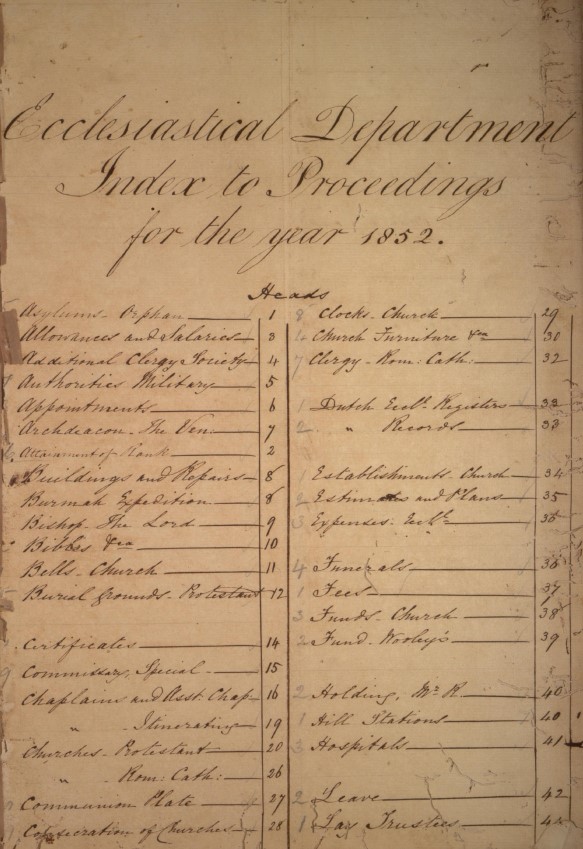 Ecclesiastical Department
Index to Proceedings
for the year 1852.
Heads
Asylums - Orphan 1
Allowances and Salaries 3
Additional Clergy Society 4
Authorities Military 5
Appointments 6
Archdeacon - The Ven: 7
Attainment of Rank 2
Buildings and Repairs 8
Burmah Expedition 8
Bishop - The Lord 9
Bibles &ca 10
Bells - Church 11
Burial Grounds - Protestant 12
Certificates 14
Commissary, Special 15
Chaplains and Asst. Chap 16
" Itinerating 19
Churches - Protestant 20
" Rom: Cath: 26
Communion Plate 27
Consecration of Churches 28
8 Clocks - Church 29
Church Furniture &ca 30
7 Clergy - Rom: Cath: 32
1 Dutch Eccl. Registers 33
2 " Records 33
1 Establishments - Church 34
2 Estimates and Plans 35
3 Expenses: Eccl. 35
4 Funerals 36
1 Fees 37
3 Funds - Church 38
2 Fund - Wooley's 39
2 Holding, Mr. R. 40
1 Hill Stations 40
3 Hospitals 41
2 Leave 42
1 Lay Trustees